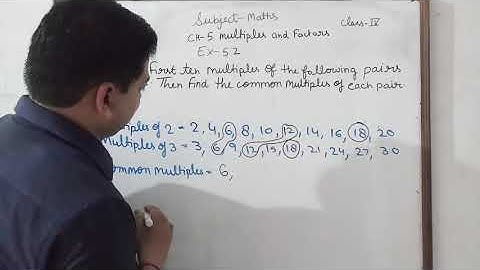 Subject-Maths
Class-IV
CH-5 Multiples and Factors
Ex-5.2
First ten multiples of the following pairs
Then find the common multiples of each pair
of 2 = 2, 4, 6, 8, 10, 12, 14, 16, 18, 20
Multiples of 3 = 3, 6, 9, 12, 15, 18, 21, 24, 27, 30
Common multiples = 6,